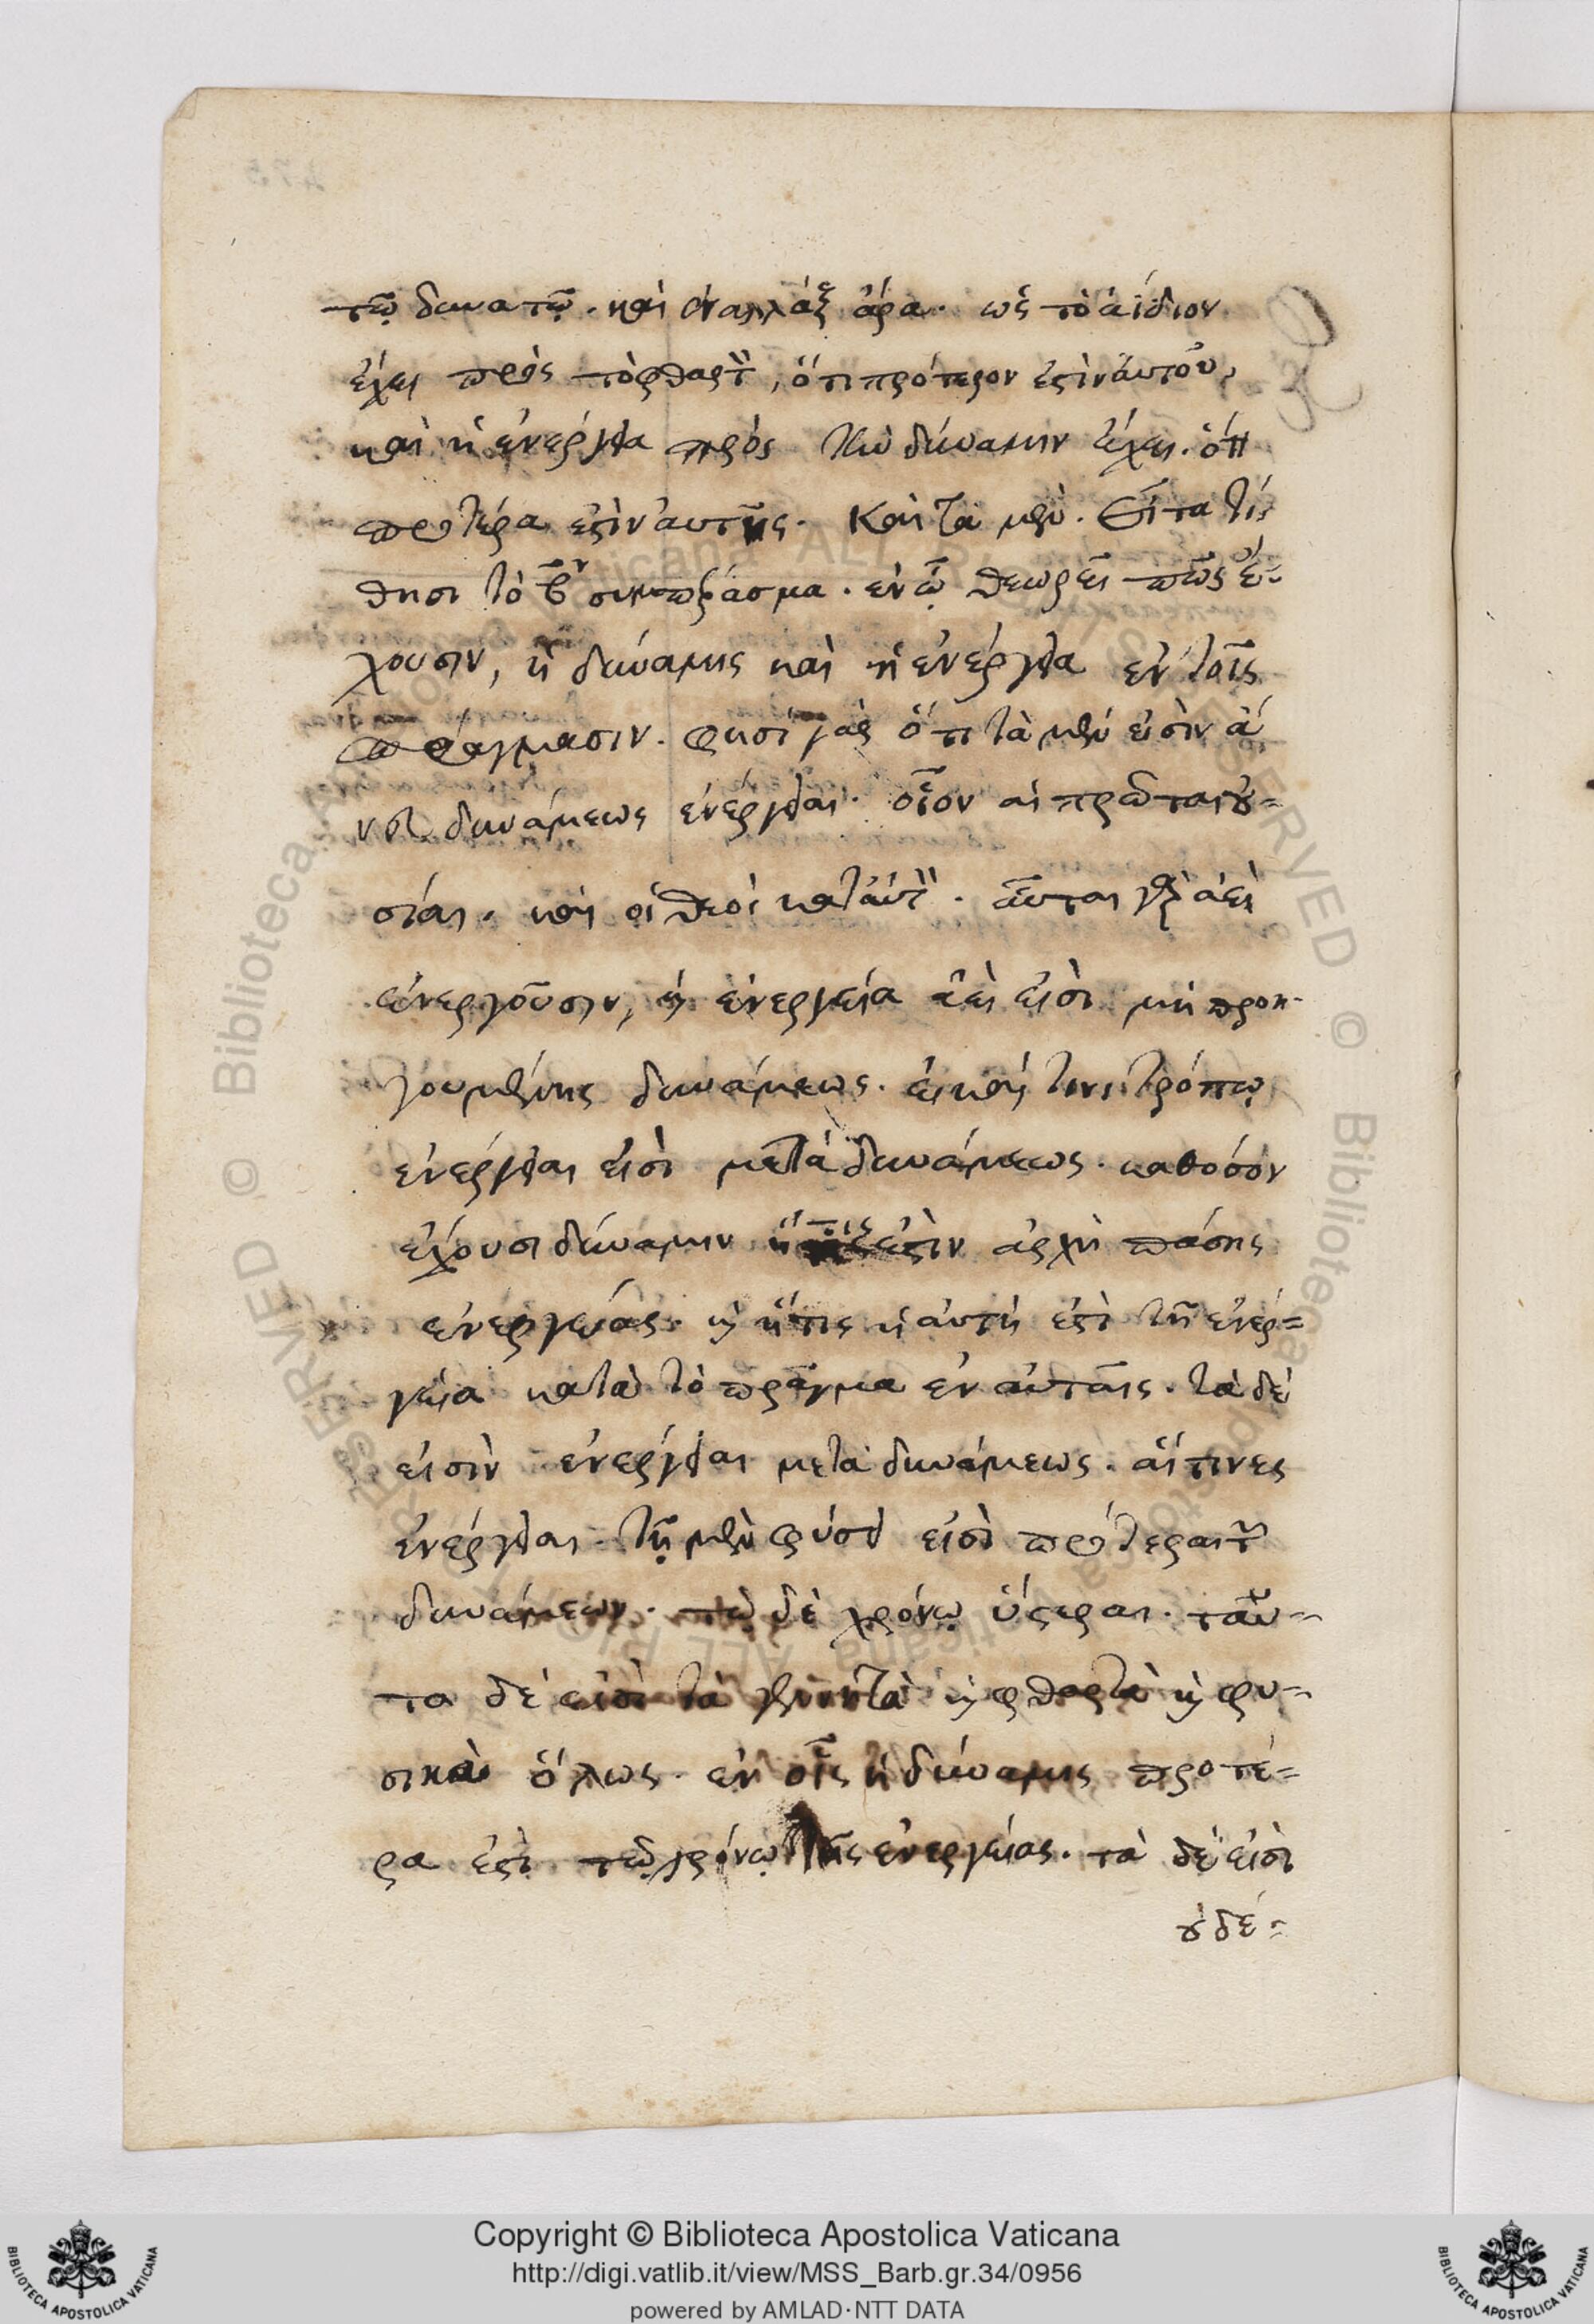 τῷ δυνατῷ. καὶ ἐναλλὰξ ἄρα. ὡς τὸ ἀΐδιον
ἔχει πρὸς τὸ φθαρτὸν, ὅτι πρότερον ἐστὶν αὐτοῦ,
καὶ ἡ ἐνέργεια πρὸς τὴν δύναμιν ἔχει. ὅτι
προτέρα ἐστὶν αὐτῆς. καὶ τὰ μὲν. Εἶτα τί-
θησι τὸ βον συμπέρασμα. ἐν ᾧ θεωρεῖ πῶς ἔ-
χουσιν, ἡ δύναμις καὶ ἡ ἐνέργεια ἐν τοῖς
πράγμασιν. φησὶ γὰρ ὅτι τὰ μὲν εἰσὶν ἄ
νευ δυνάμεως ἐνέργειαι. οἷον αἱ πρῶται οὐ-
σίαι. καὶ οἱ θεοὶ κατ' αὐτὸν. αὗται γὰρ ἀεὶ
ἐνεργοῦσιν, καὶ ἐνεργεία ἀεὶ εἰσὶ μὴ προη-
γουμένης δυνάμεως. εἰ καὶ τινὶ τρόπῳ
ἐνέργειαι εἰσὶ μετὰ δυνάμεως. καθόσον
ἔχουσι δύναμιν ἥτις ἐστὶν ἀρχὴ πάσης
ἐνεργείας. καὶ ἥτις ἡ αὐτὴ ἐστὶ τῇ ἐνερ-
γεία κατὰ τὸ πρᾶγμα ἐν αὐταῖς. τὰ δὲ
εἰσὶν ἐνέργειαι μετὰ δυνάμεως. αἵτινες
ἐνέργειαι. τῇ μὲν φύσει εἰσὶ πρότεραι τῶν
δυνάμεων. τῷ δὲ χρόνῳ ὕστεραι. ταῦ-
τα δὲ εἰσὶ τὰ γεννητὰ καὶ φθαρτὰ καὶ φυ-
σικὰ ὅλως. ἐν οἷς ἡ δύναμις προτέ-
ρα ἐστὶ τῷ χρόνῳ τῆς ἐνεργείας. τὰ δὲ εἰσὶ
οὐδέ-
Copyright © Biblioteca Apostolica Vaticana
http://digi.vatlib.it/view/MSS_Barb.gr.34/0956
powered by AMLAD·NTT DATA